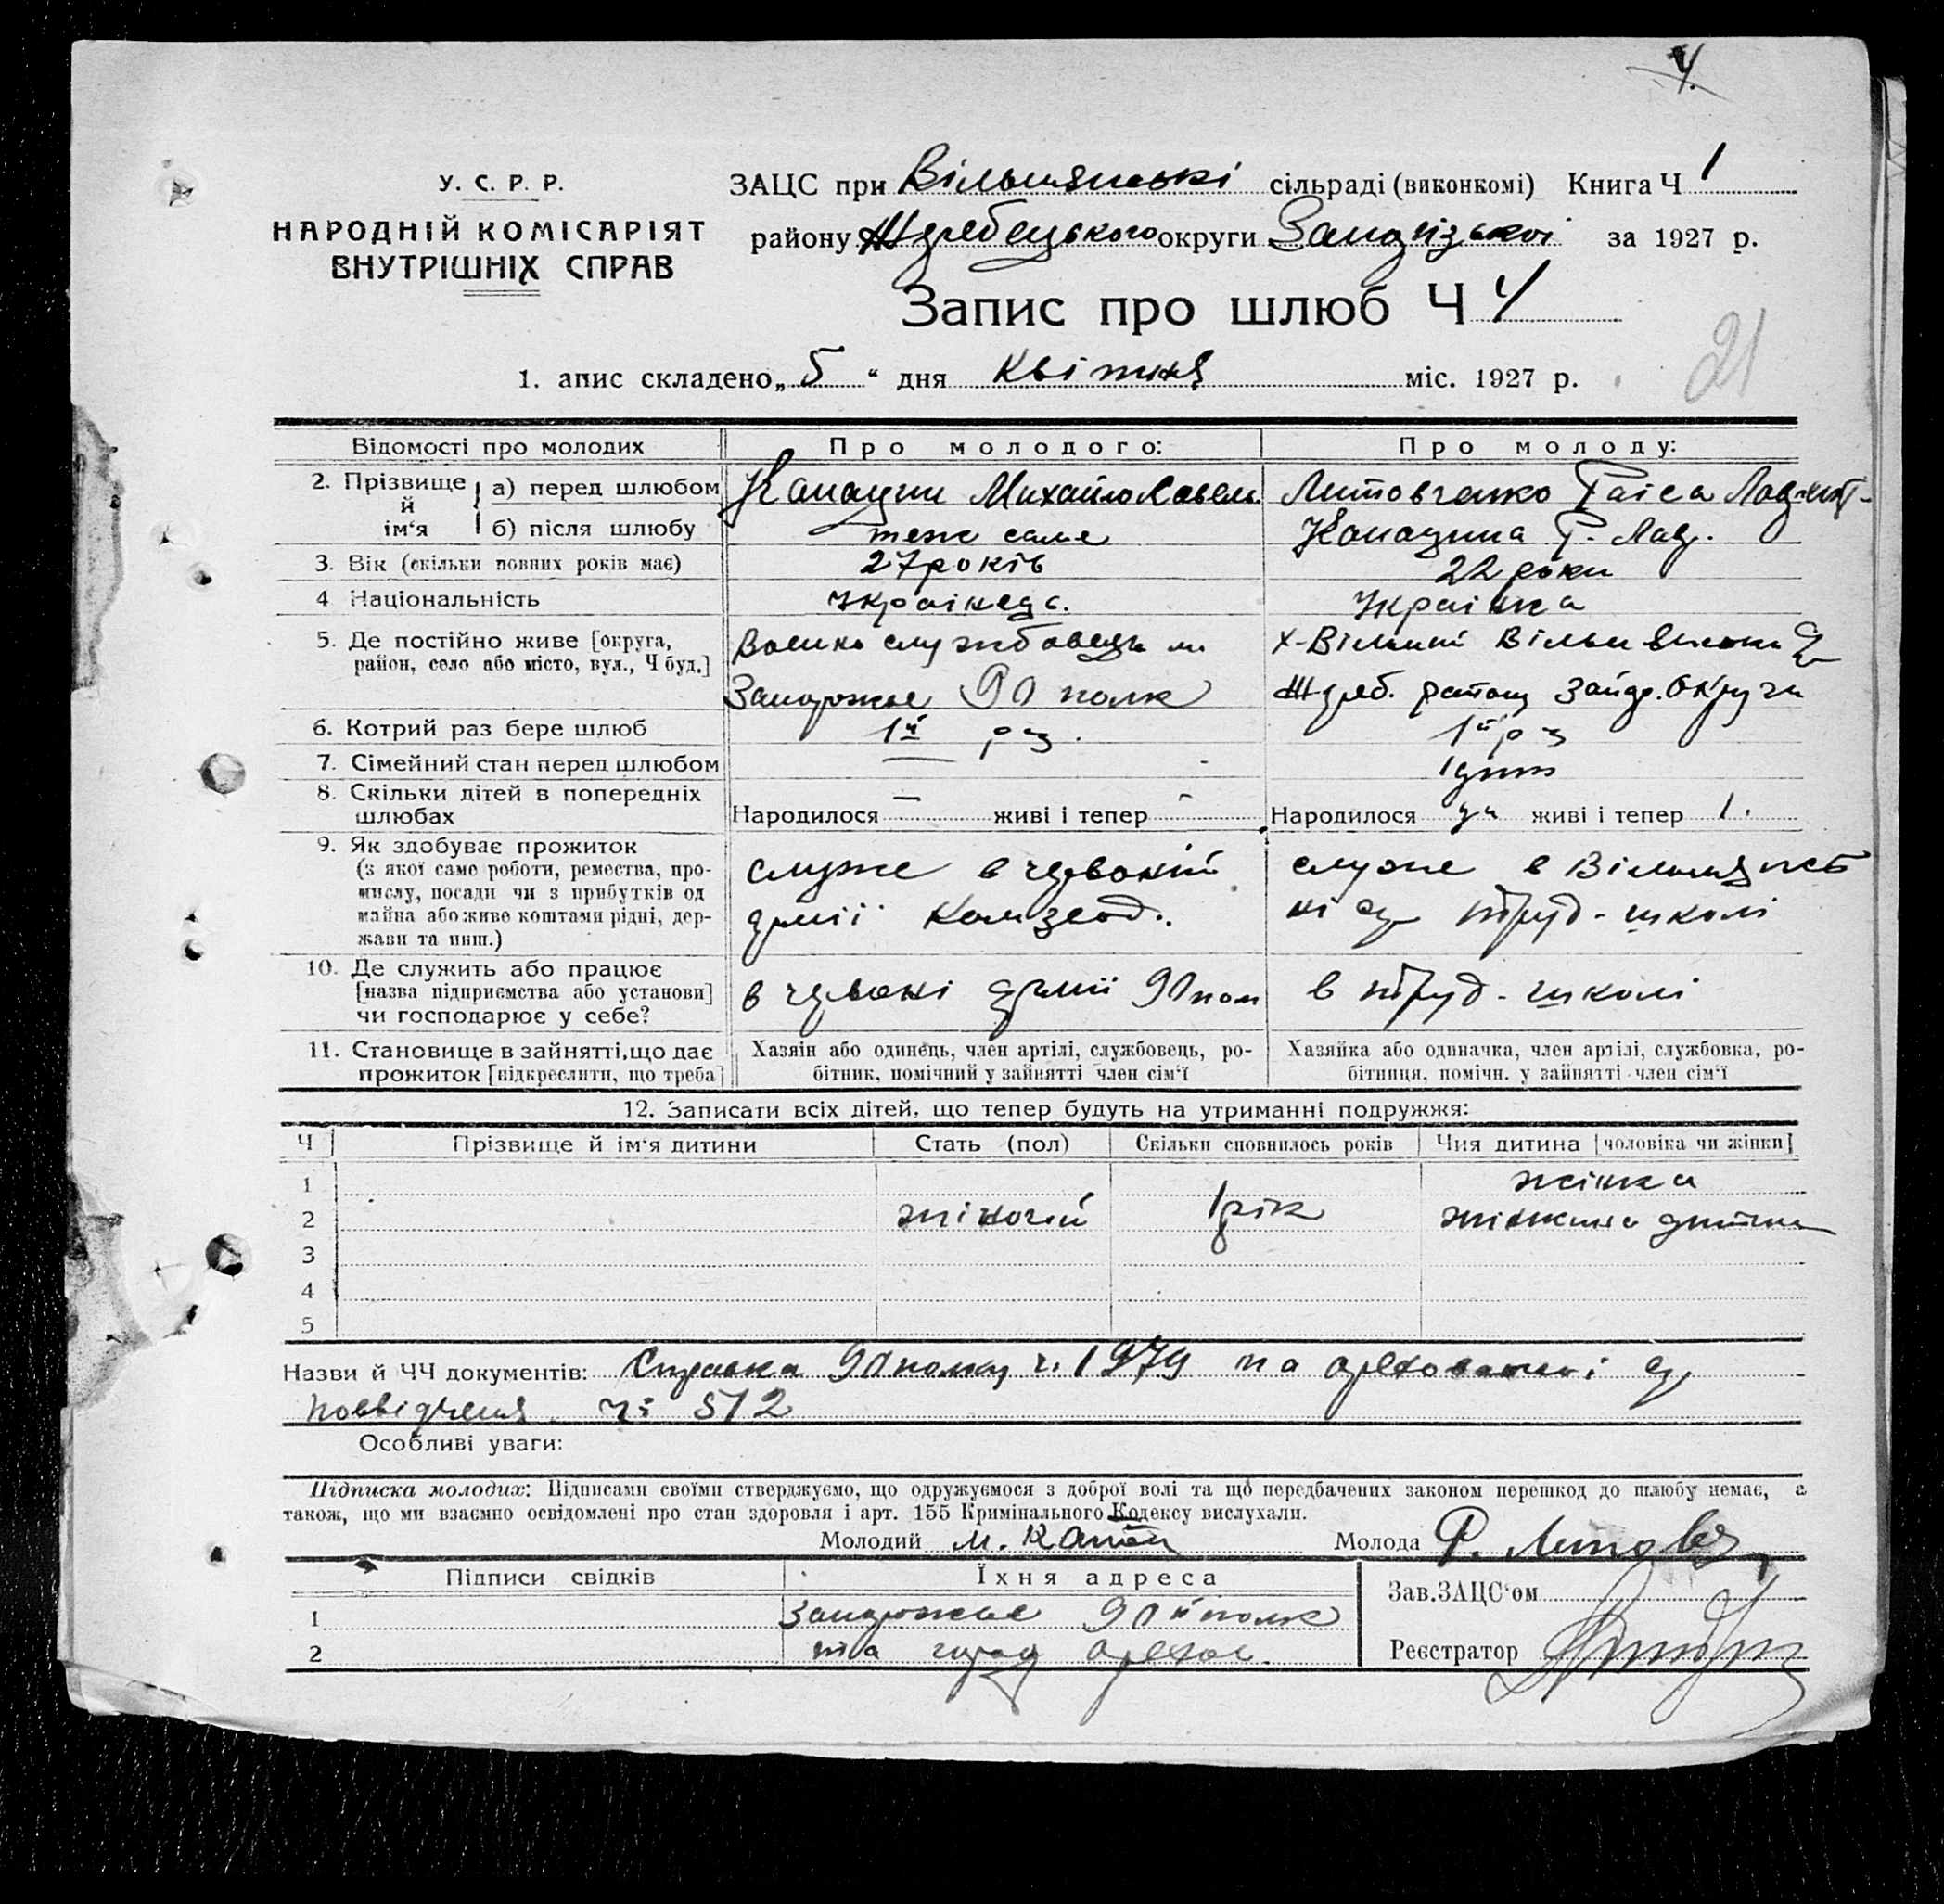 4.
У. С. Р. Р.
НАРОДНІЙ КОМІСАРІЯТ
ВНУТРІШНІХ СПРАВ
ЗАЦС при Вільшанські сільраді (виконкомі) Книга Ч 1
району Жеребецького округи Запорізької за 1927 р.
Запис про шлюб Ч 4
21
1. апис складено „ 5 “ дня Квітня міс. 1927 р.
Відомості про молодих Про молодого: Про молоду:
2. Прізвище й ім‘я а) перед шлюбом Михайло Литовченко Раіса
б) після шлюбу теж саме Р. Лав.
3. Вік (скільки повних років має) 27 років 22 роки
4 Національність Українець. Українка
5. Де постійно живе [округа,
район, село або місто, вул., Ч буд.]
Военно службовець м.
Запорожье 90 полк
Жереб. району Запор. Округи
6. Котрий раз бере шлюб 1й раз. 1й раз
7. Сімейний стан перед шлюбом —
8. Скільки дітей в попередніх
шлюбах
Народилося — живі і тепер — Народилося живі і тепер 1.
9. Як здобуває прожиток
(з якої само роботи, ремества, про-
мислу, посади чи з прибутків од
майна або живе коштами рідні, дер-
жави та инш.)
служе в червоній
армії Комзвод.
служе в
труд-школі
10. Де служить або працює
[назва підприємства або установи]
чи господарює у себе?
в червоні армії 90 пол
в труд-школі
11. Становище в зайнятті, що дає
прожиток [підкреслити, що треба]
Хазяїн або одинець, член артілі, службовець, ро-
бітник, помічний у зайнятті член сім‘ї
Хазяйка або одиначка, член артілі, службовка, ро-
бітниця, помічн. у зайнятті член сім‘ї
12. Записати всіх дітей, що тепер будуть на утриманні подружжя:
Ч Прізвище й ім‘я дитини Стать (пол) Скільки сповнилось років Чия дитина [чоловіка чи жінки]
1 жінка
2 жіночій 1 рік дитина
3
4
5
Назви й ЧЧ документів: Справка 90 полку ч. 1979 та
ч: 512
Особливі уваги:
Підписка молодих: Підписами своїми стверджуємо, що одружуємося з доброї волі та що передбачених законом перешкод до шлюбу немає, а
також, що ми взаємно освідомлені про стан здоровля і арт. 155 Кримінального Кодексу вислухали.
Молодий М. Молода Р.
Підписи свідків Їхня адреса
1 Запорожье 90й полк
2 та город Орехов.
Зав. ЗАЦС‘ом
Реєстратор